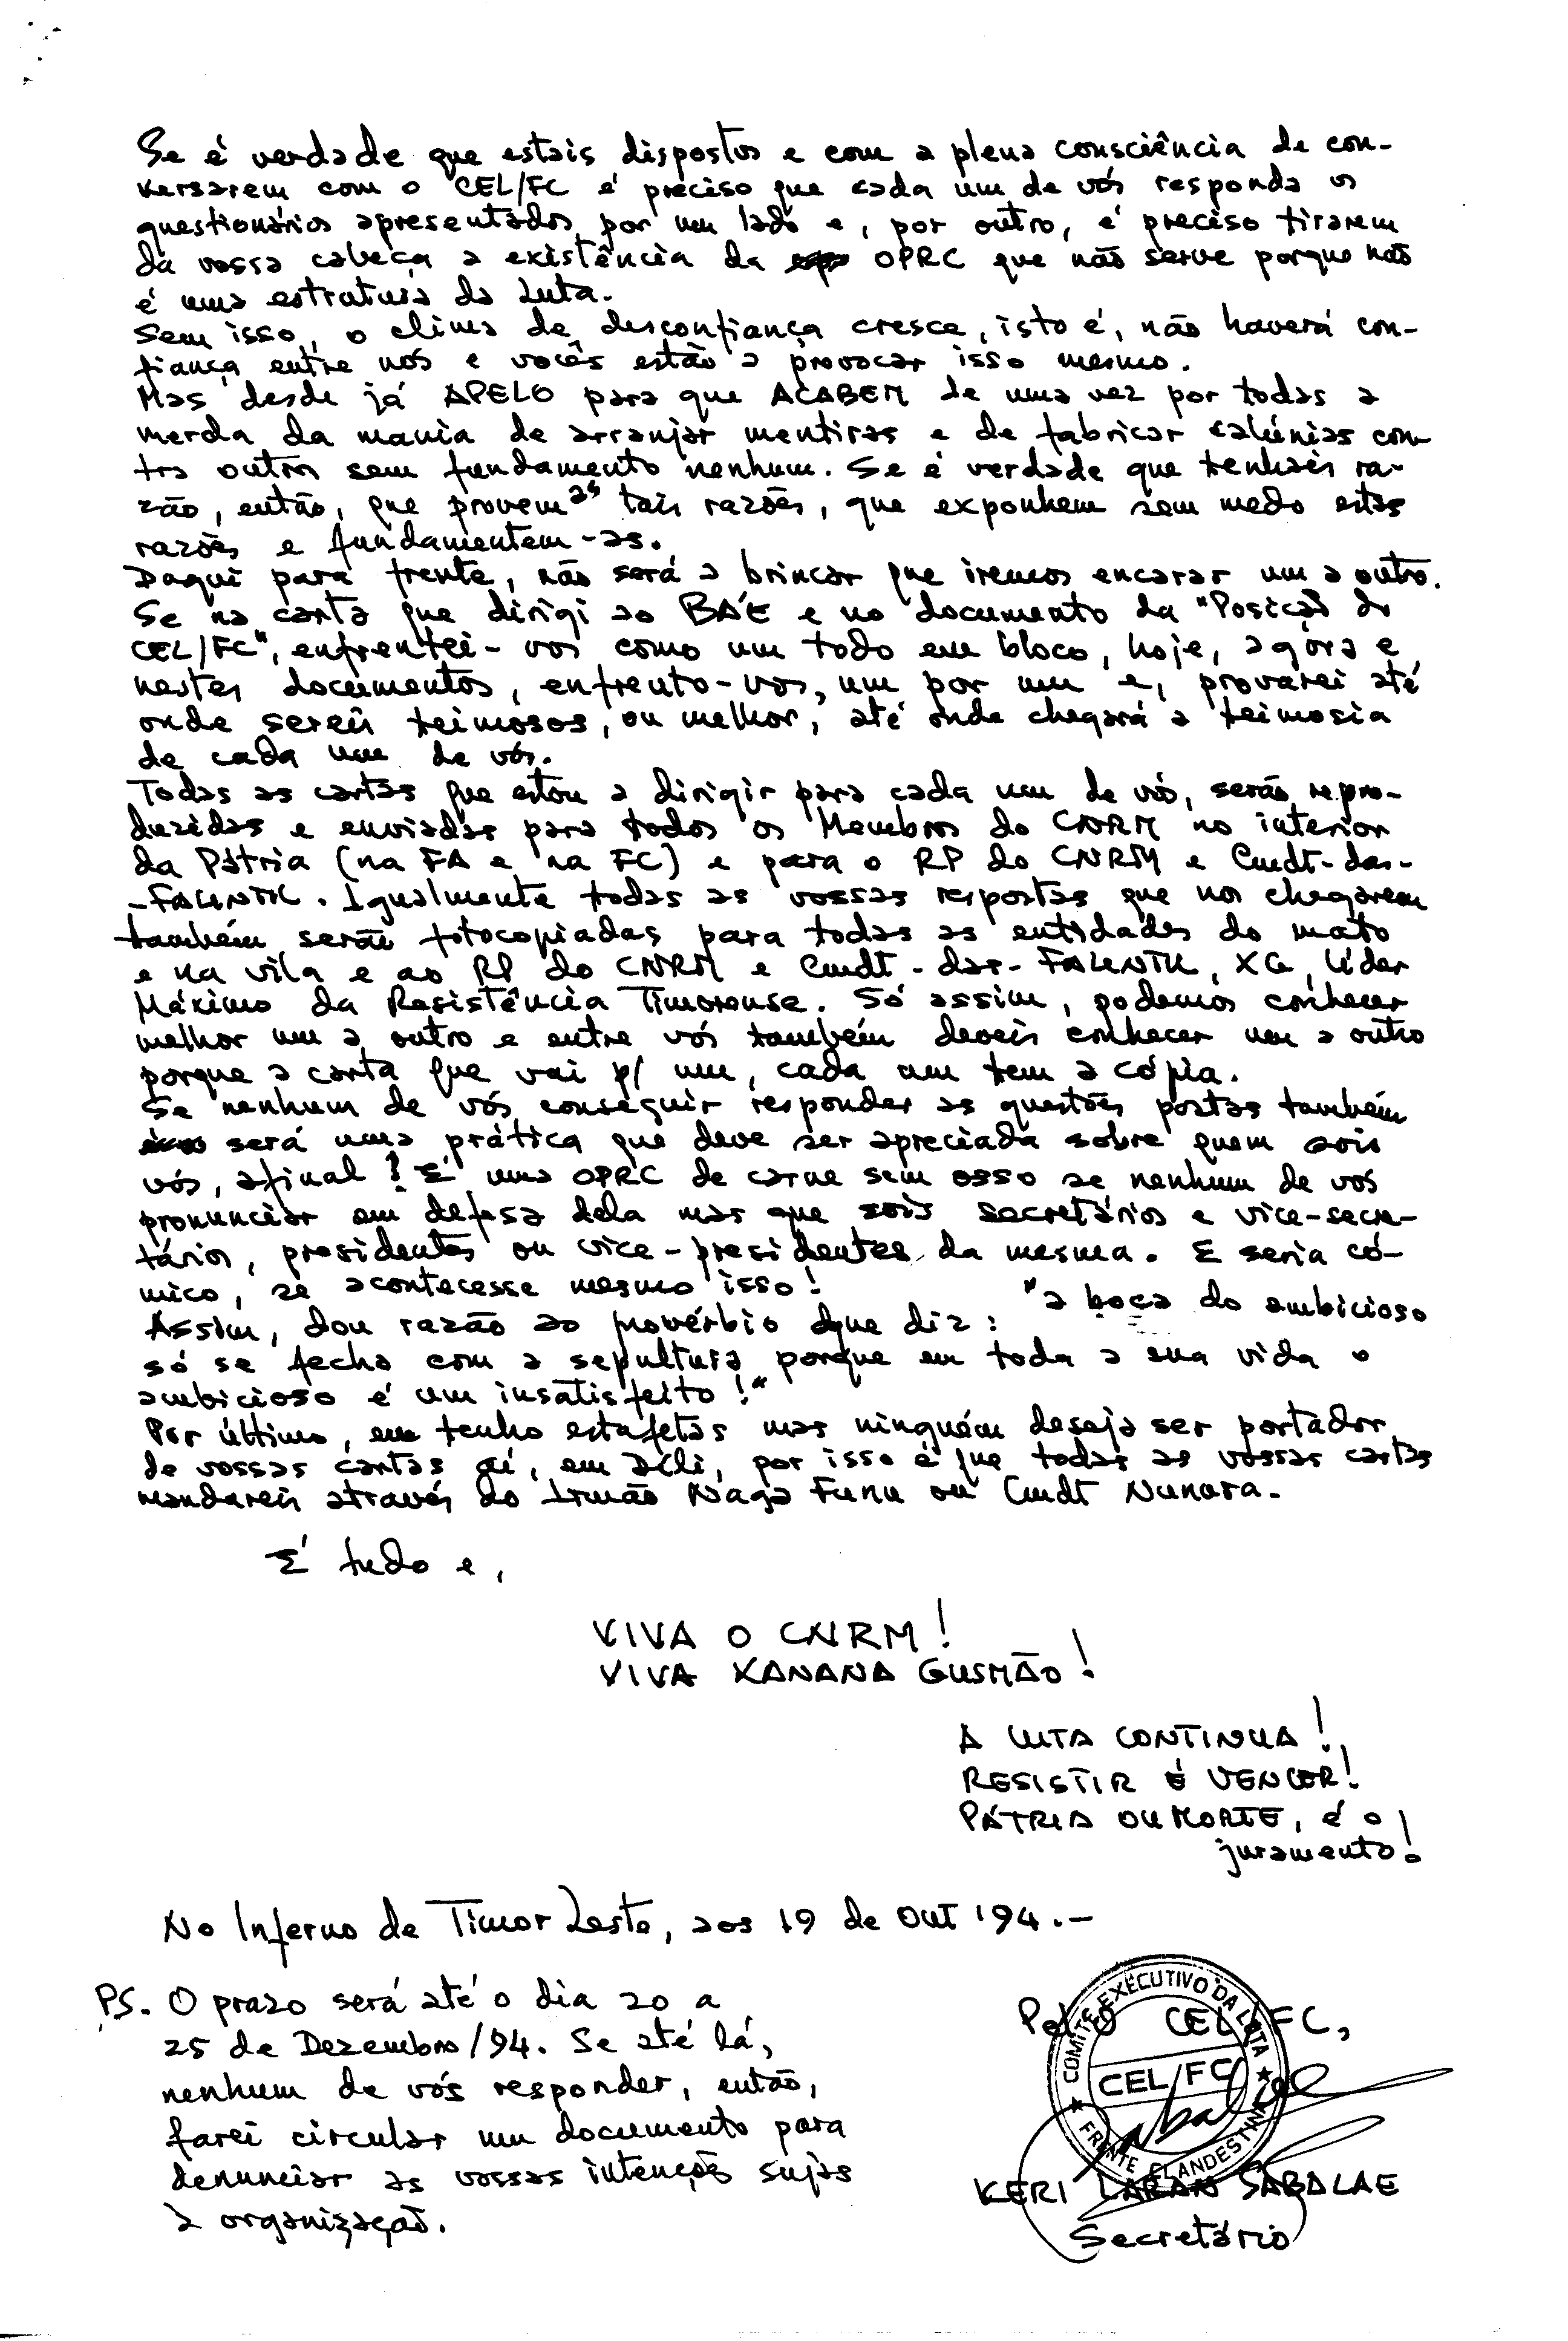 Se é verdade que estais dispostos e com a plena consciência de con-
versarem com o CEL/FC é preciso que cada um de vós responda os
questionários apresentados, por um lado e, por outro, é preciso tirarem
da vossa cabeça a existência da OPRC que não serve porque não
é uma estrutura da Luta.
Sem isso, o clima de desconfiança cresce, isto é, não haverá con-
fiança entre nós e vocês estão a provocar isso mesmo.
Mas desde já APELO para que ACABEM de uma vez por todas a
merda da mania de arranjar mentiras e de fabricar calúnias con-
tra outros sem fundamento nenhum. Se é verdade que tenhais ra-
zão, então, que provem as tais razões, que exponhem sem medo estas
razões e fundamentem-as.
Daqui para frente, não será a brincar que iremos encarar um a outro.
Se na carta que dirigi ao BA'E e no documento da "Posição do
CEL/FC", enfrentei-vos como um todo em bloco, hoje, agora e
nestes documentos, enfrento-vos, um por um e, provarei até
onde sereis teimosos, ou melhor, até onde chegará a teimosia
de cada um de vós.
Todas as cartas que estou a dirigir para cada um de vós, serão repro-
duzidas e enviadas para todos os Membros do CNRM no interior
da Pátria (na FA e na FC) e para o RP do CNRM e Cmdt-das-
-FALINTIL. Igualmente todas as vossas respostas que nos chegarem
também serão fotocopiadas para todas as entidades do mato
e na vila e ao RP do CNRM e Cmdt-das-FALINTIL, XG, Líder
Máximo da Resistência Timorense. Só assim, podemos conhecer
melhor um a outro e entre vós também deveis conhecer um a outro
porque a carta que vai p/ um, cada um tem a cópia.
Se nenhum de vós conseguir responder as questões postas também
será uma prática que deve ser apreciada sobre quem sois
vós, afinal! É uma OPRC de carne sem osso se nenhum de vós
pronunciar em defesa dela mas que sois secretários e vice-secre-
tários, presidentes ou vice-presidentes da mesma. E seria có-
mico, se acontecesse mesmo isso!
Assim, dou razão ao provérbio que diz: "a boca do ambicioso
só se fecha com a sepultura porque em toda a sua vida o
ambicioso é um insatisfeito!"
Por último, eu tenho estafetas mas ninguém deseja ser portador
de vossas cartas aí, em Díli, por isso é que todas as vossas cartas
mandareis através do Irmão Naga Funu ou Cmdt Nunara.
É tudo e,
VIVA O CNRM!
VIVA XANANA GUSMÃO!
A LUTA CONTINUA!
RESISTIR É VENCER!
PÁTRIA OU MORTE, é o
juramento!
No Inferno de Timor Leste, aos 19 de Out '94.-
PS. O prazo será até o dia 20 a
25 de Dezembro/94. Se até lá,
nenhum de vós responder, então,
farei circular um documento para
denunciar as vossas intenções sujas
à organização.
Pel'O CEL/FC,
COMITÉ EXECUTIVO DA LUTA
CEL/FC
FRENTE CLANDESTINA
KERI LARAN SABALAE
Secretário